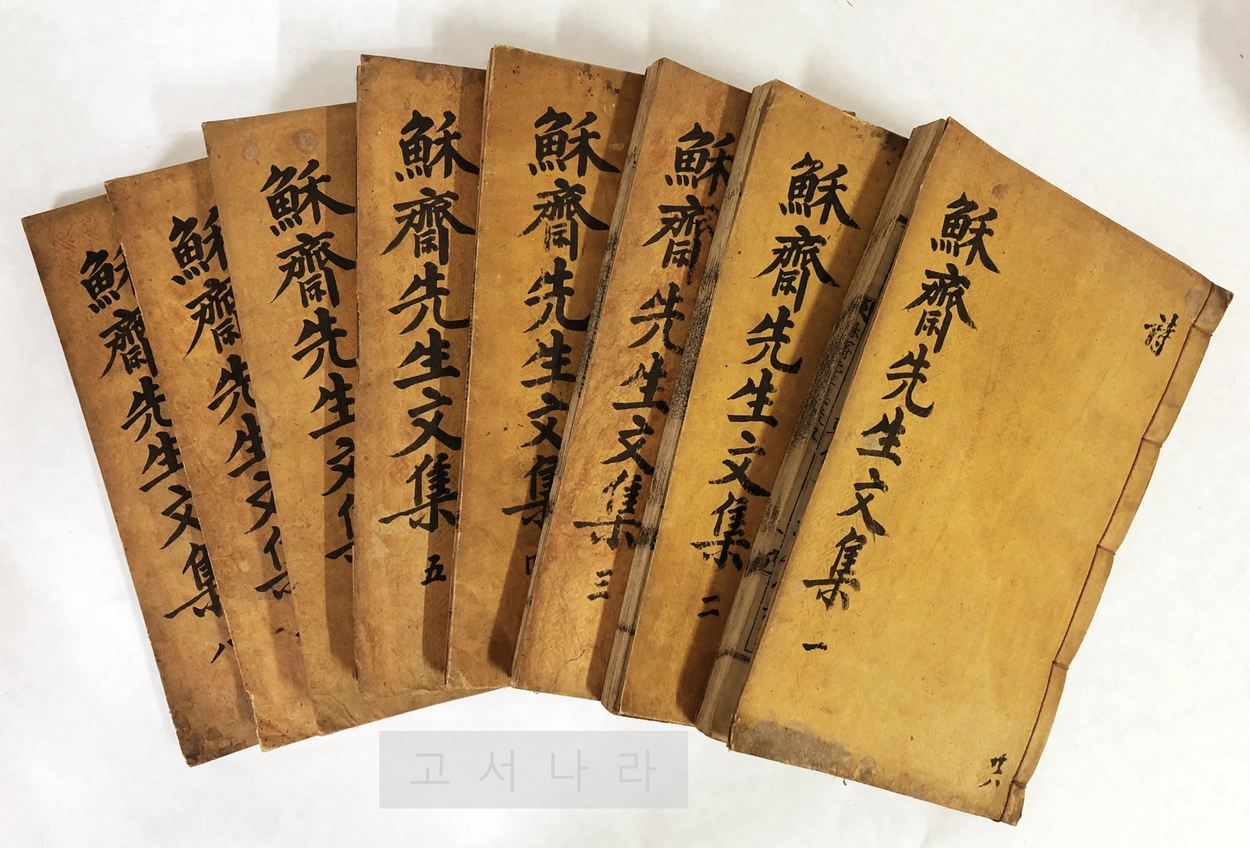 詩
穌齋先生文集 一
共八
穌齋先生文集 二
穌齋先生文集 三
穌齋先生文集
穌齋先生文集 五
穌齋先生文集
穌齋先生文集
穌齋先生文集 八
고서나라